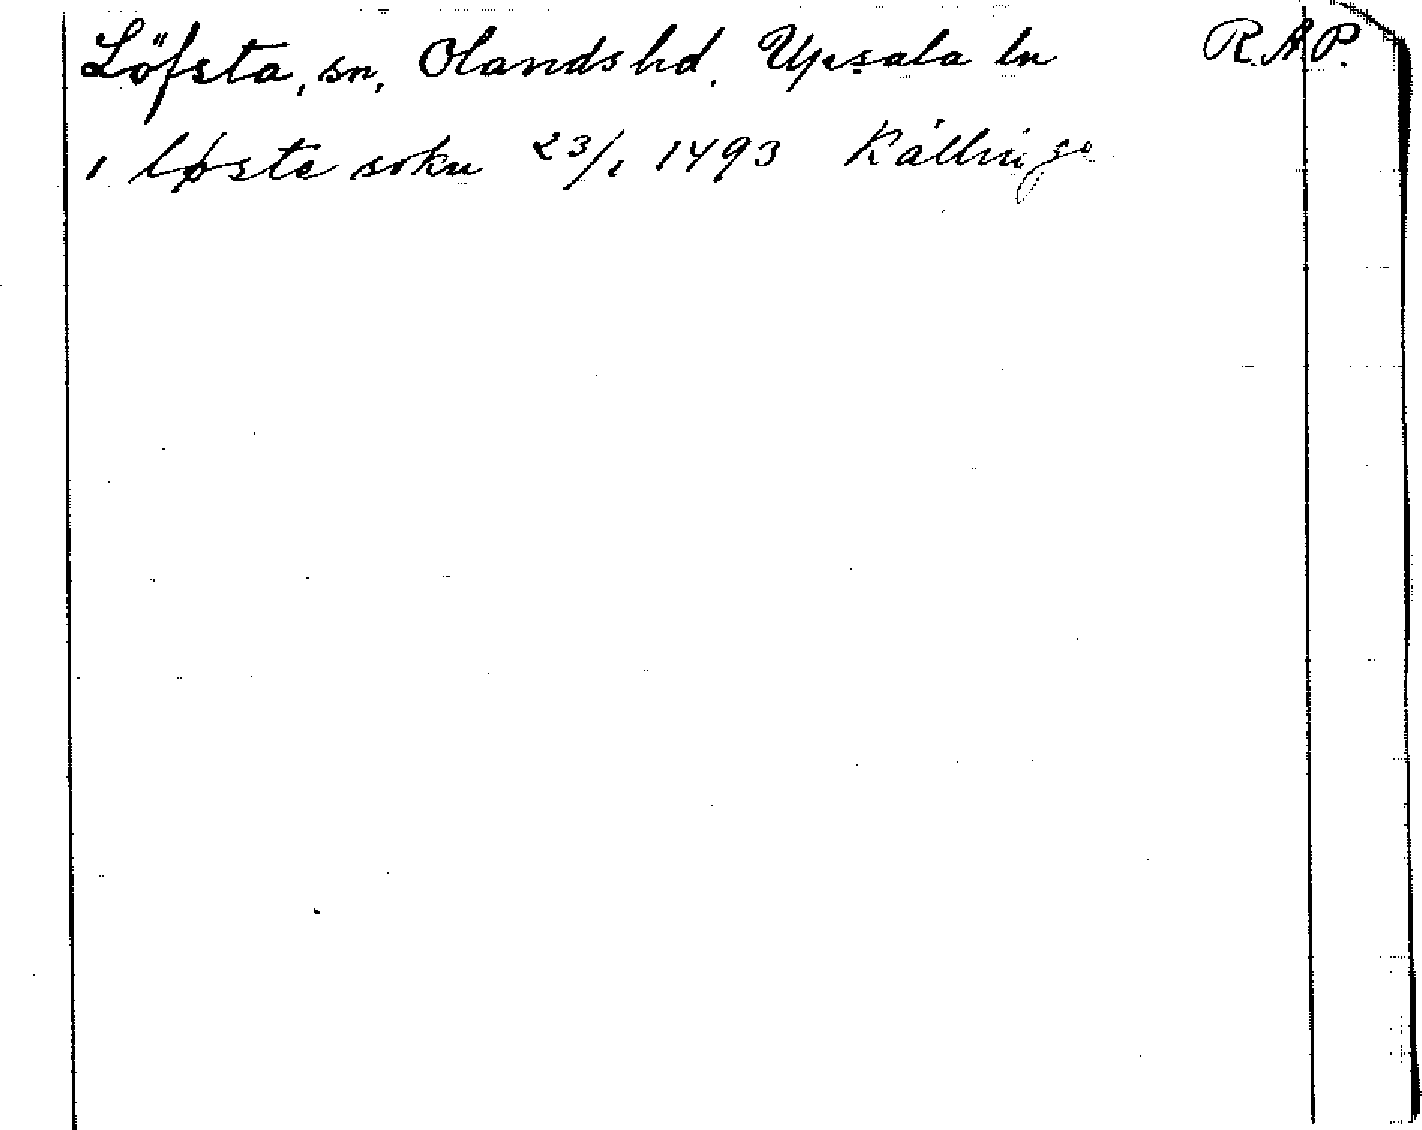 Löfsta, sn, Olands hd. Upsala ln R.A.P.
i løste sokn 23/1 1493 Källinge